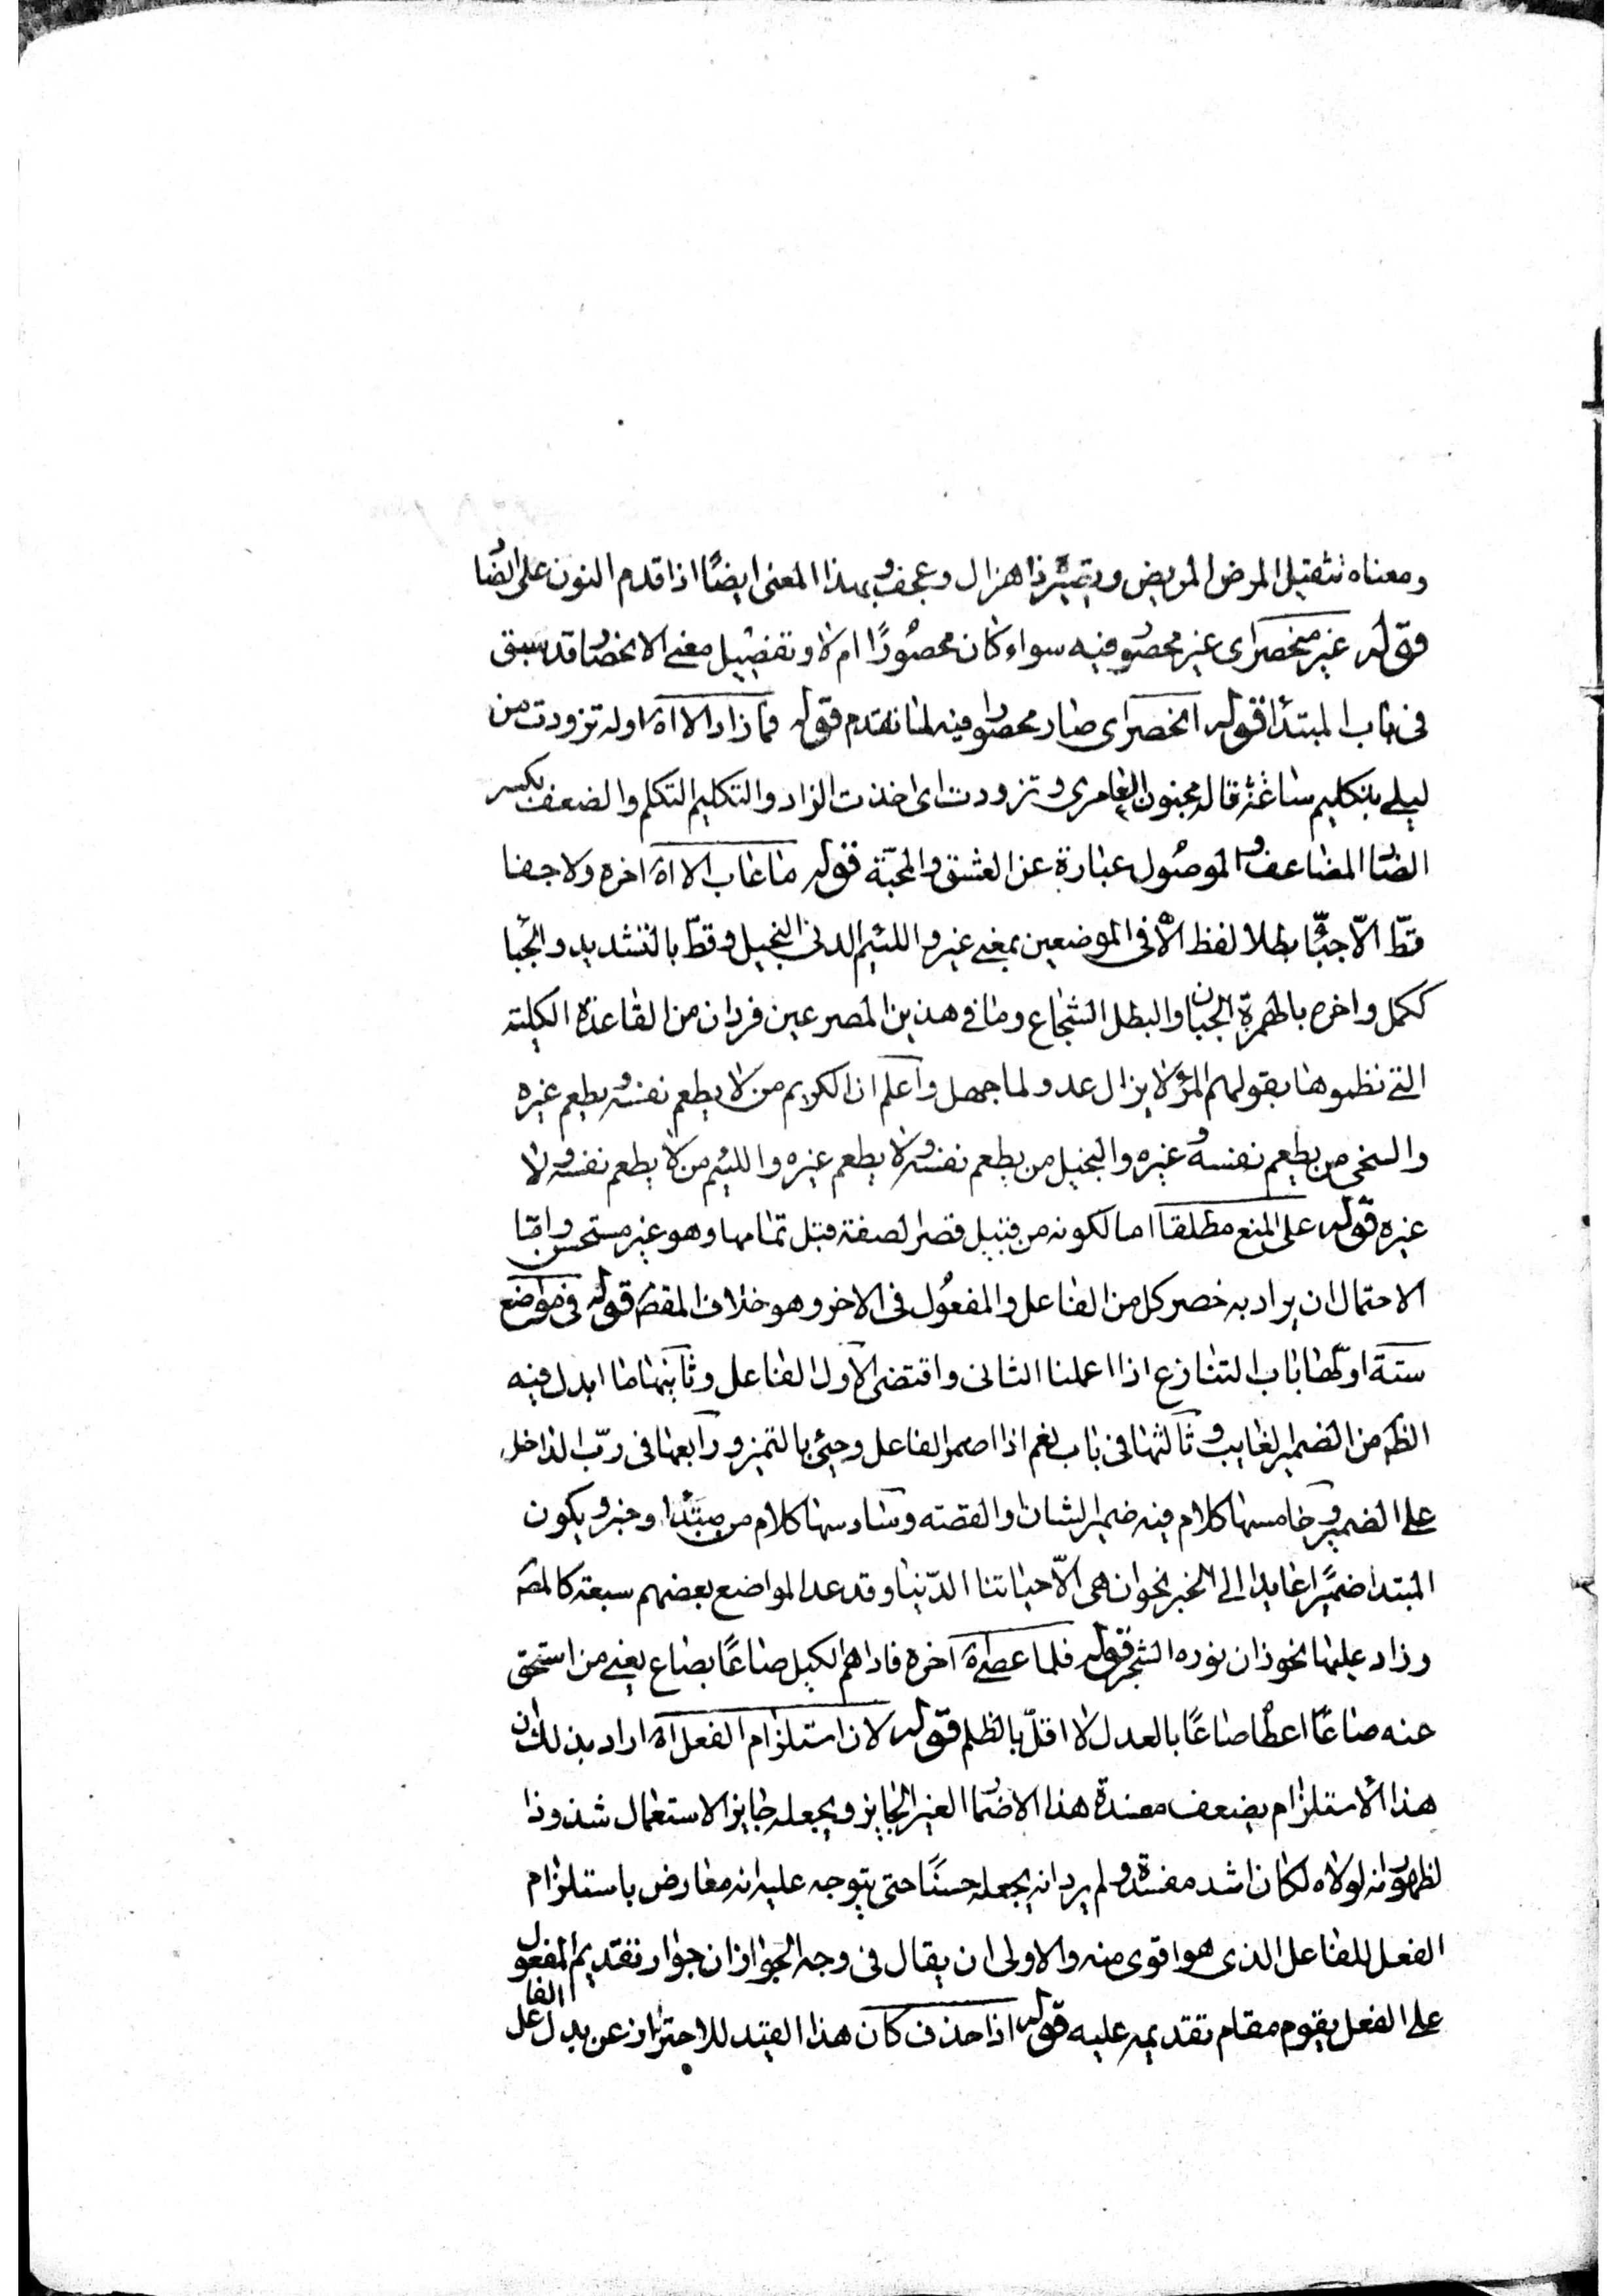 ومعناه تثقيل المرض المريض ويصيره ذا هزال وعجف وبهذا المعنى ايضًا اذا قدم النون على الضا
قوله غير منحصر اى غير محصور فيه سواء كان محصُورًا ام لا وتفصيل معنى الانحصار قد سبق
فى باب المبتدا قوله انحصر اى صار محصورا فيه لما تقدم قوله فما زاد الا اه اوله تزودت من
ليلى بتكليم ساعة قاله مجنون العامرى وتزودت اى اخذت الزاد والتكليم التكلم والضعف بكسر
الضاد المضاعف والموصُول عبارة عن العشق والمحبّة قوله ما عاب الا اه اخره ولا جفا
قطّ الّا جبّأ بطلا لفظ الا فى الموضعين بمعنى غير واللئيم الدنى البخيل وقطّ بالتشديد والجبا
ككمل واخره بالهمزة الجبان والبطل الشجاع وما فى هذين المصرعين فردان من القاعدة الكلية
التى نظموها بقولهم المرء لا يزال عدو لما جهل واعلم ان الكريم من لا يطعم نفسه ويطعم غيره
والسخى من يطعم نفسه وغيره والبخيل من يطعم نفسه ولا يطعم غيره واللئيم من لا يطعم نفسه ولا
غيره قوله على المنع مطلقا اما لكونه من قبيل قصر الصفة قبل تمامها وهو غير مستحسن وامّا
الاحتمال ان يراد به حصر كل من الفاعل والمفعُول فى الاخر وهو خلاف المقصَ قوله فى مواضع
ستة اولها باب التنازع اذا اعملنا الثانى واقتضى الاول الفاعل وثانيها ما ابدل فيه
الظَ من الضمير الغايب وثالثها فى باب نعم اذا اضمر الفاعل وجئ بالتميز ورابعها فى ربّ الداخل
على الضمير وخامسها كلام فيه ضمير الشان والقصّة وسادسها كلام من مبتدا وخبر ويكون
المبتدا ضميرًا عايدا الى الخبر نحو ان هى الّا حياتنا الدّنيا وقد عد المواضع بعضهم سبعة كالمصَ
وزاد عليها نحو زان نوره الشجر قوله فلما عصى اه اخره فاداهم الكيل صاعًا بصاع يعنى من استحق
عنه صاعًا اعطاه صاعًا بالعدل لا اقلّ بالظلم قوله لان استلزام الفعل اه اراد بذلك ان
هذا الاستلزام يضعف مفسدة هذا الاضمار الغير الجايز ويجعله جايز الاستعمال شذوذا
لظهور انه لولاه لكان اشد مفسدة ولم يرد انه يجعله حسنًا حتى يتوجه عليه انه معارض باستلزام
الفعل للفاعل الذى هو اقوى منه والاولى ان يقال فى وجه الجواز ان جواز تقديم المفعول
على الفعل يقوم مقام تقديمه عليه قوله اذا حذف كان هذا القيد للاحتراز عن بدل الفاعل